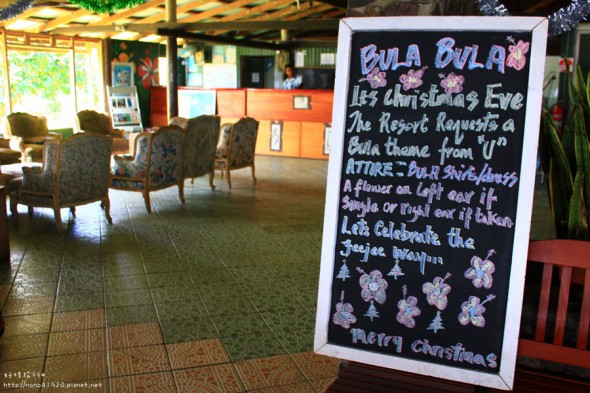 BULA BULA
Its Christmas Eve
The Resort Requests a
Bula theme from "U"
ATTIRE = Bula Shirts/dress
A flower on Left ear if
Single or right ear if taken
Let's Celebrate the
jeejee way...
Merry Christmas
http://nono41420.pixnet.net